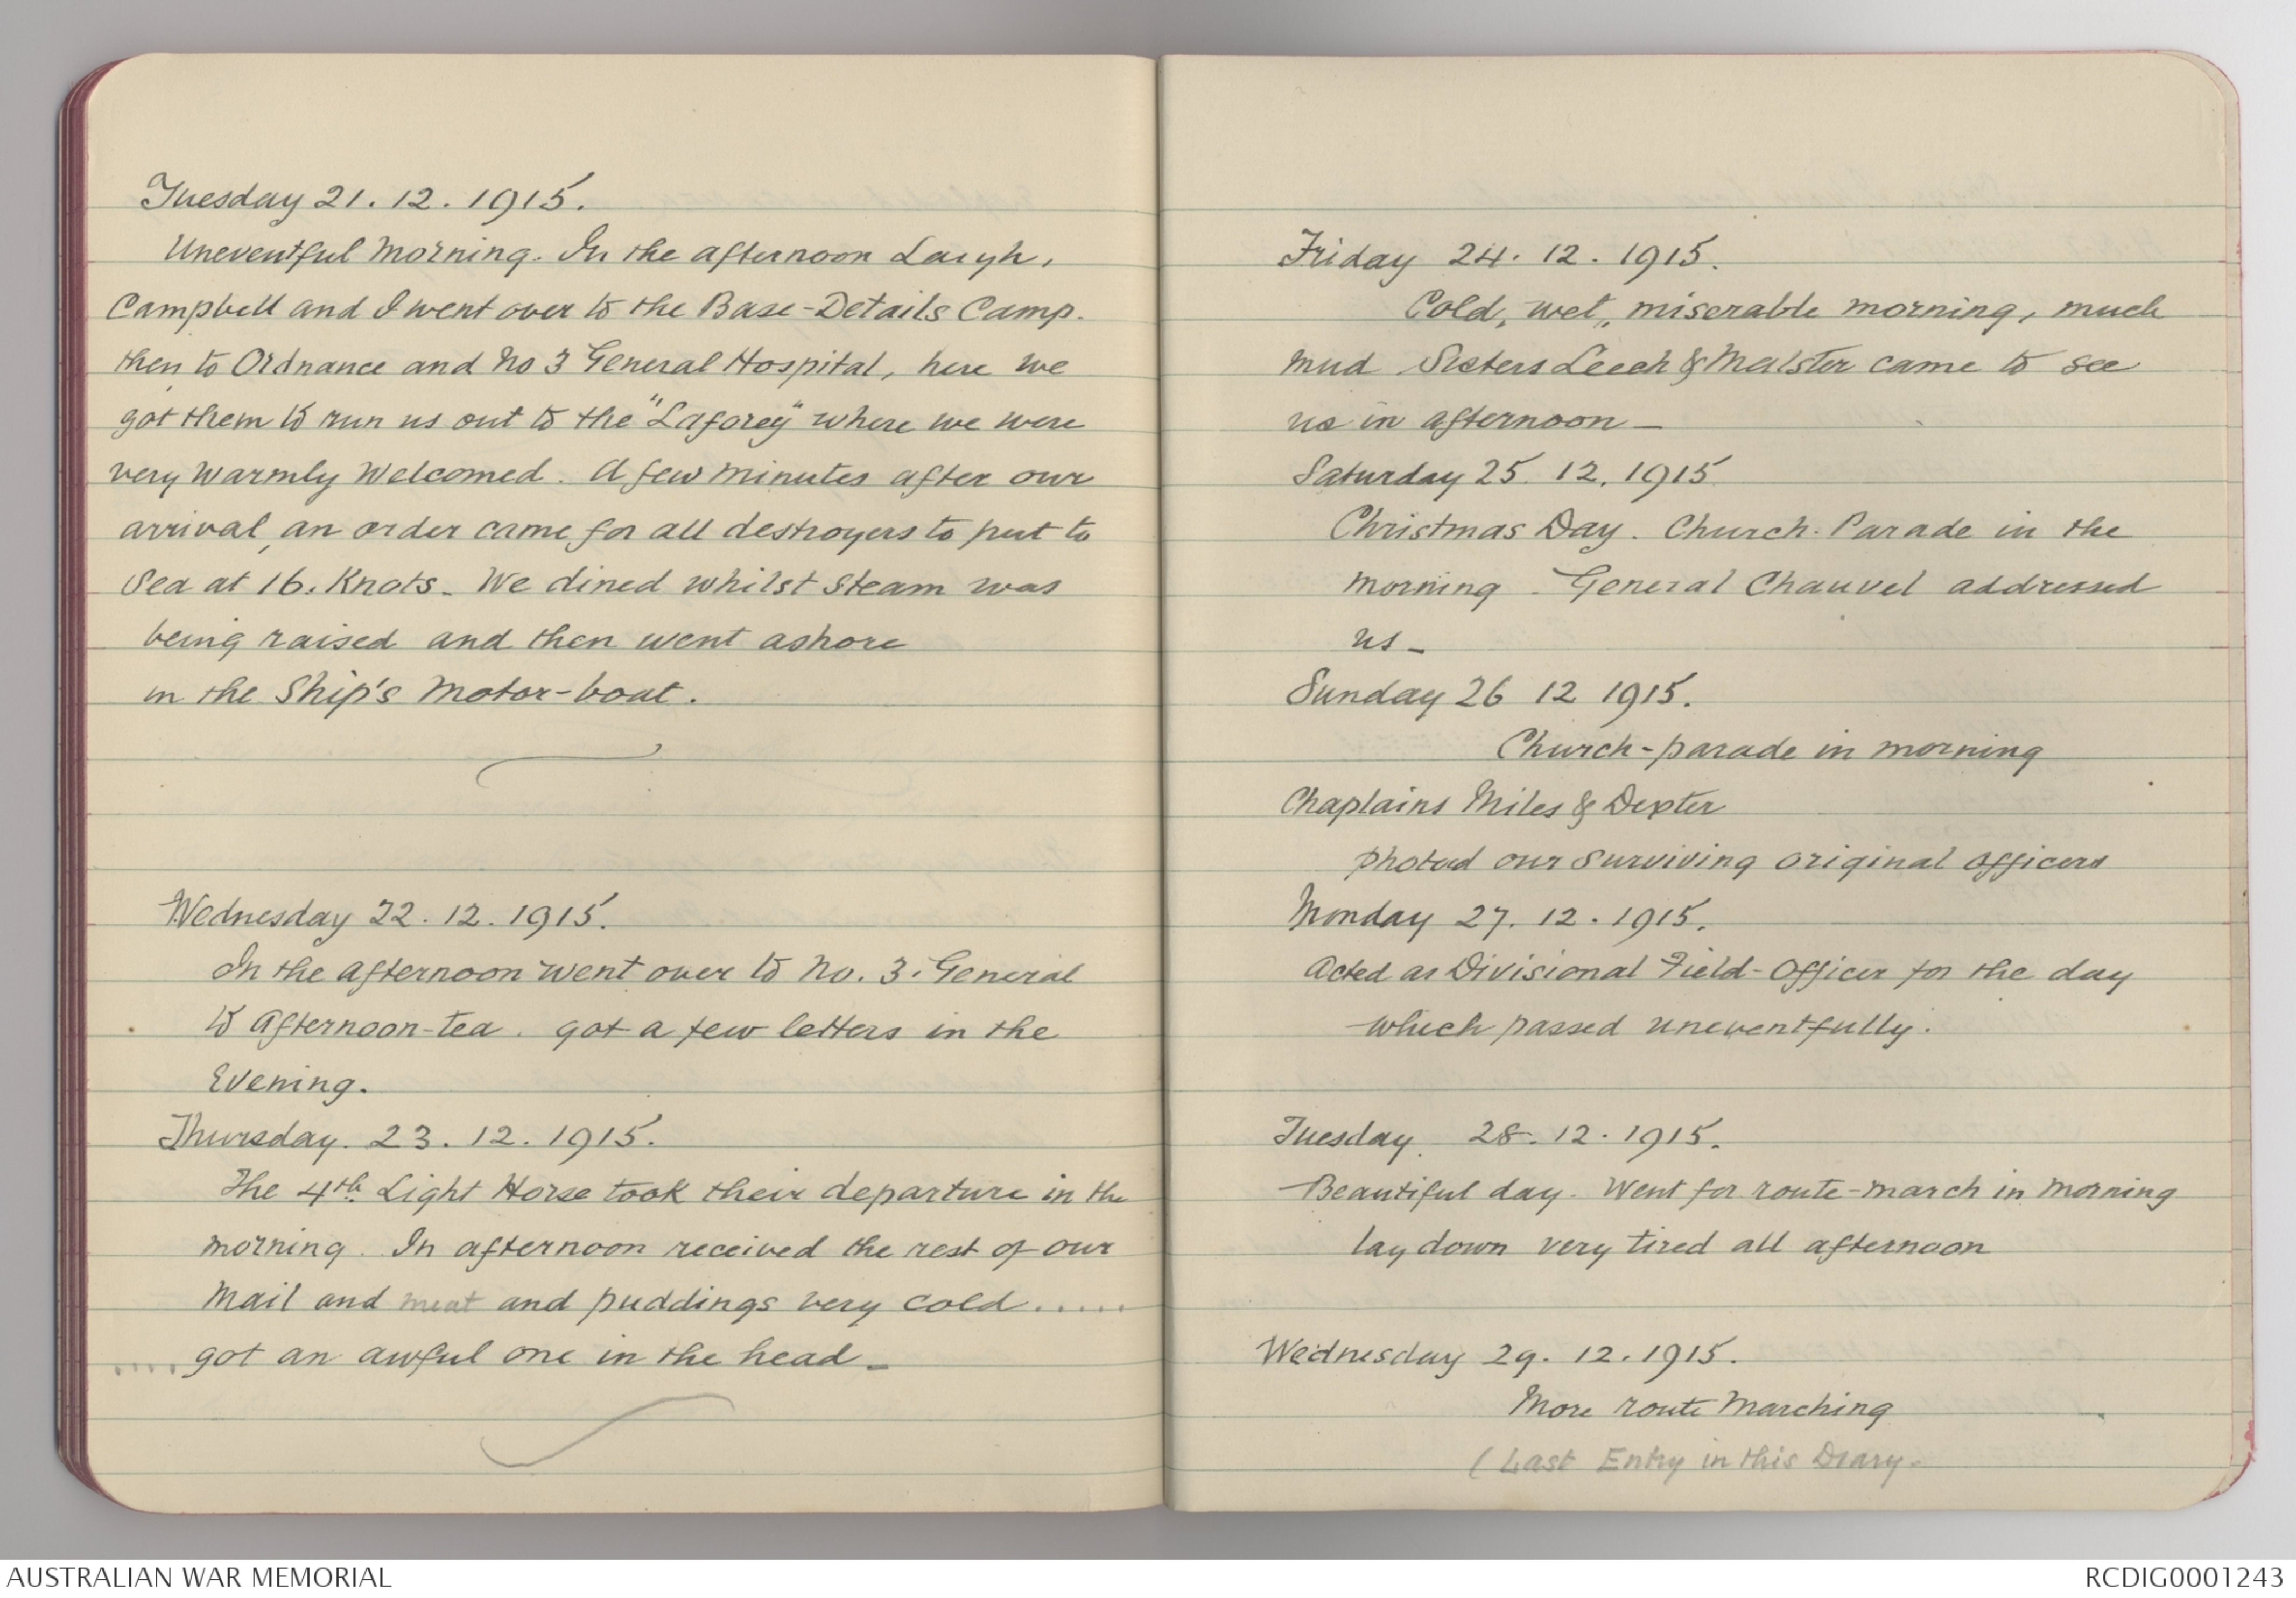 Tuesday 21. 12. 1915.
Uneventful morning. In the afternoon
Campbell and I went over to the Base-Details Camp.
then to Ordnance and No 3 General Hospital, here we
got them to run us out to the "Laforey" where we were
very warmly welcomed. A few minutes after our
arrival, an order came for all destroyers to put to
Sea at 16. Knots. We dined whilst steam was
being raised and then went ashore
in the Ship's motor-boat.
Wednesday 22. 12. 1915.
In the afternoon went over to No. 3. General
to afternoon-tea. got a few letters in the
Evening.
Thursday. 23. 12. 1915.
The 4th Light Horse took their departure in the
morning. In afternoon received the rest of our
Mail and meat and puddings very cold.....
.... got an awful one in the head_
Friday 24. 12. 1915.
Cold, wet, miserable morning, much
mud Sisters Leech & Malster came to see
us in afternoon_
Saturday 25. 12. 1915.
Christmas Day. Church-Parade in the
morning. General Chauvel addressed
us_
Sunday 26 12 1915.
Church-parade in morning
Chaplains Miles & Dexter
photod our surviving original officers
Monday 27. 12. 1915.
Acted as Divisional Field-Officer for the day
which passed uneventfully.
Tuesday. 28. 12. 1915.
Beautiful day. Went for route-march in morning
lay down very tired all afternoon
Wednesday 29. 12. 1915.
More route marching
(Last Entry in this Diary.
AUSTRALIAN WAR MEMORIAL
RCDIG0001243